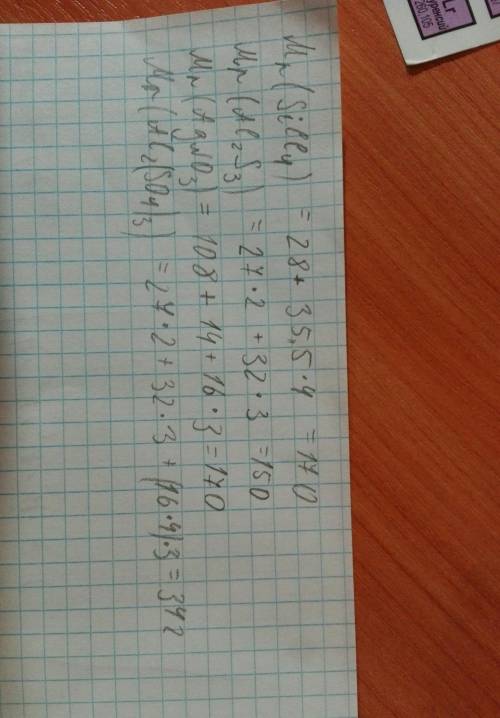 Mr(SiCl4) = 28 + 35,5 · 4 = 170
Mr(Al2S3) = 27 · 2 + 32 · 3 = 150
Mr(AgNO3) = 108 + 14 + 16 · 3 = 170
Mr(Al2(SO4)3) = 27 · 2 + 32 · 3 + (16 · 4) · 3 = 342
Lr
260,105